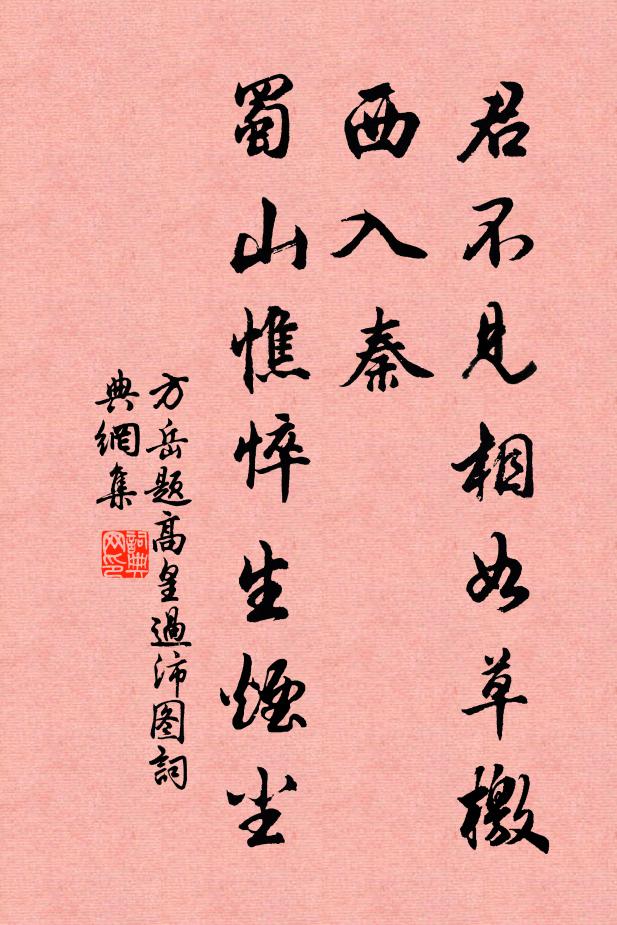 君不見相如草檄
西入秦
蜀山憔悴生煙尘
方岳題高皇過沛图詞
典網集
詞典网印